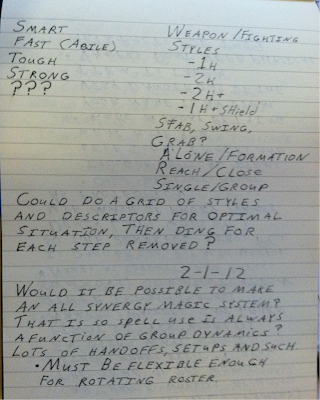 SMART
FAST (AGILE)
TOUGH
STRONG
???
WEAPON/FIGHTING
STYLES
-1H
-2H
-2H+
-1H+SHIELD
STAB, SWING,
GRAB?
ALONE/FORMATION
REACH/CLOSE
SINGLE/GROUP
COULD DO A GRID OF STYLES
AND DESCRIPTORS FOR OPTIMAL
SITUATION, THEN DING FOR
EACH STEP REMOVED?
2-1-12
WOULD IT BE POSSIBLE TO MAKE
AN ALL SYNERGY MAGIC SYSTEM?
THAT IS SO SPELL USE IS ALWAYS
A FUNCTION OF GROUP DYNAMICS?
LOTS OF HANDOFFS, SETUPS AND SUCH.
• MUST BE FLEXIBLE ENOUGH
FOR ROTATING ROSTER.